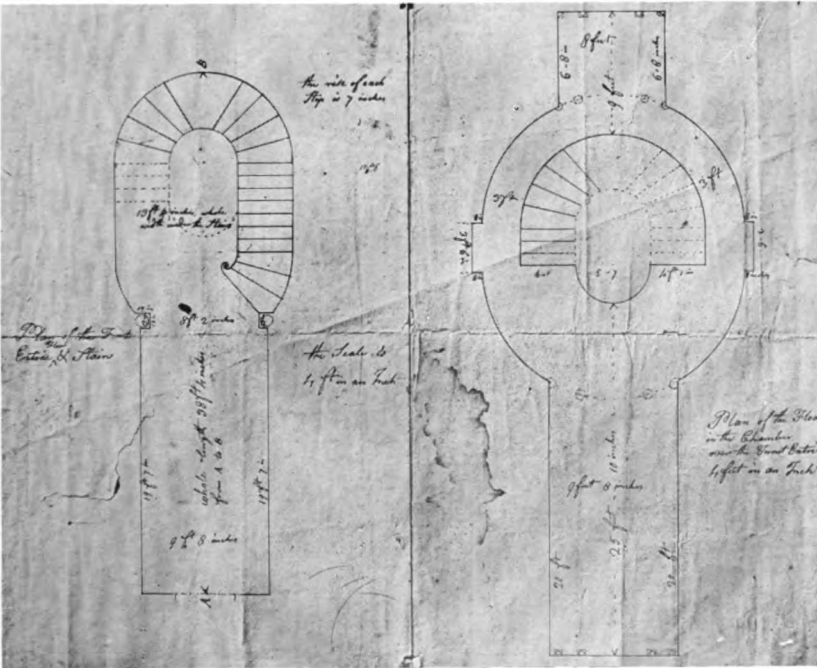 B
the rise of each
Step is 7 inches
13 ft 4 inches whole
width under the Stairs
8 ft 2 inches
Plan of the
Entrée & Stairs
the Scale is
4 ft in an Inch
whole length 38 ft 4 inches
from A to B
19 ft 7 in
19 ft 7 in
9 ft 8 inches
A
8 feet
6-8 in
6-8 inches
9 feet
3 ft
3 ft
5-7
4 ft 7 in
Plan of the Floor
in the Chamber
over the Front Entré
4 feet in an Inch
9 feet 8 inches
25 ft 10 inches
21 ft